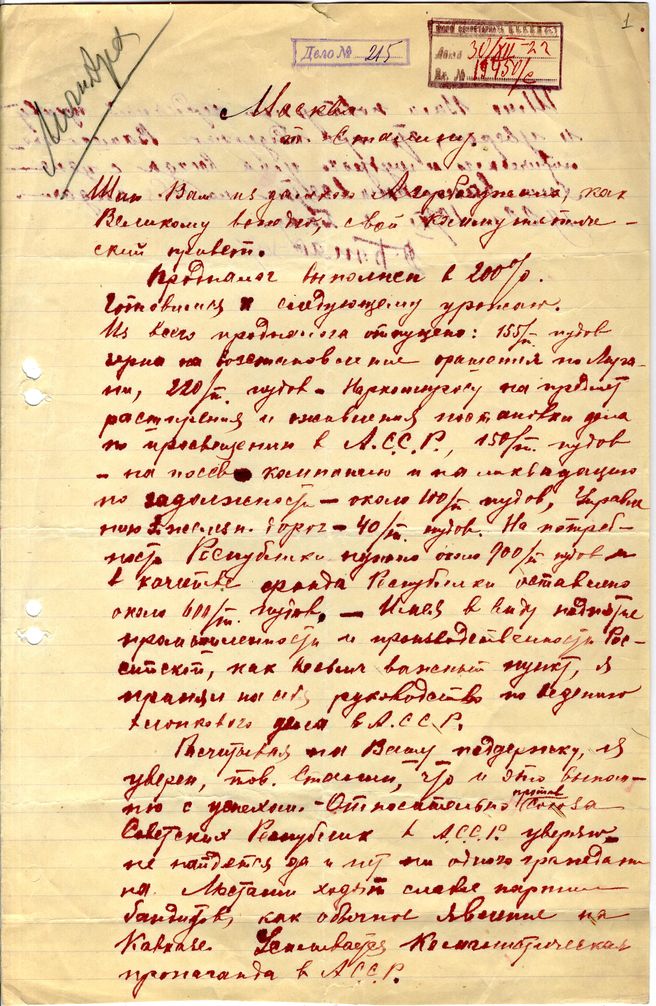 1.
Дело № 215
30/XII-22
19450/с
Москва
т. Сталину
Шлю Вам из далекого Азербейджана, как
Великому вождю, свой коммунистиче-
ский привет.
Продналог выполнен в 200%.
Готовимся к следующему урожаю.
Из всего продналога отпущено: 155/т. пудов
зерна на возстановление орошения по Муга-
ни, 220/т. пудов – на предмет
расширения и оживления постановки дела
по просвещению в А.С.С.Р., 150/т. пудов
– на посев компанию и на ликвидацию
по задолжности – около 100/т пудов, Управле
нию дорог – 40/т. пудов. На потреб-
ность Республики нужно около 900/т пудов и
в качестве фонда Республики оставлено
около 600/т. пудов. – Имея в виду поднятие
промышленности и производственности Рос-
сийской, как весьма важный пункт, я
принял на себя руководство по ведению
хлопкового дела в А.С.С.Р.
Расчитывая на Вашу поддержку, я
уверен, тов. Сталин, что и это выпол-
ню с успехом. – Относительно против Союза
Советских Республик в А.С.С.Р. уверяю
не найдется да и нет ни одного граждани
на. Местами ходят слабые партии
бандитов, как обычное явление на
Кавказе. Коммунистическая
пропаганда в А.С.С.Р.